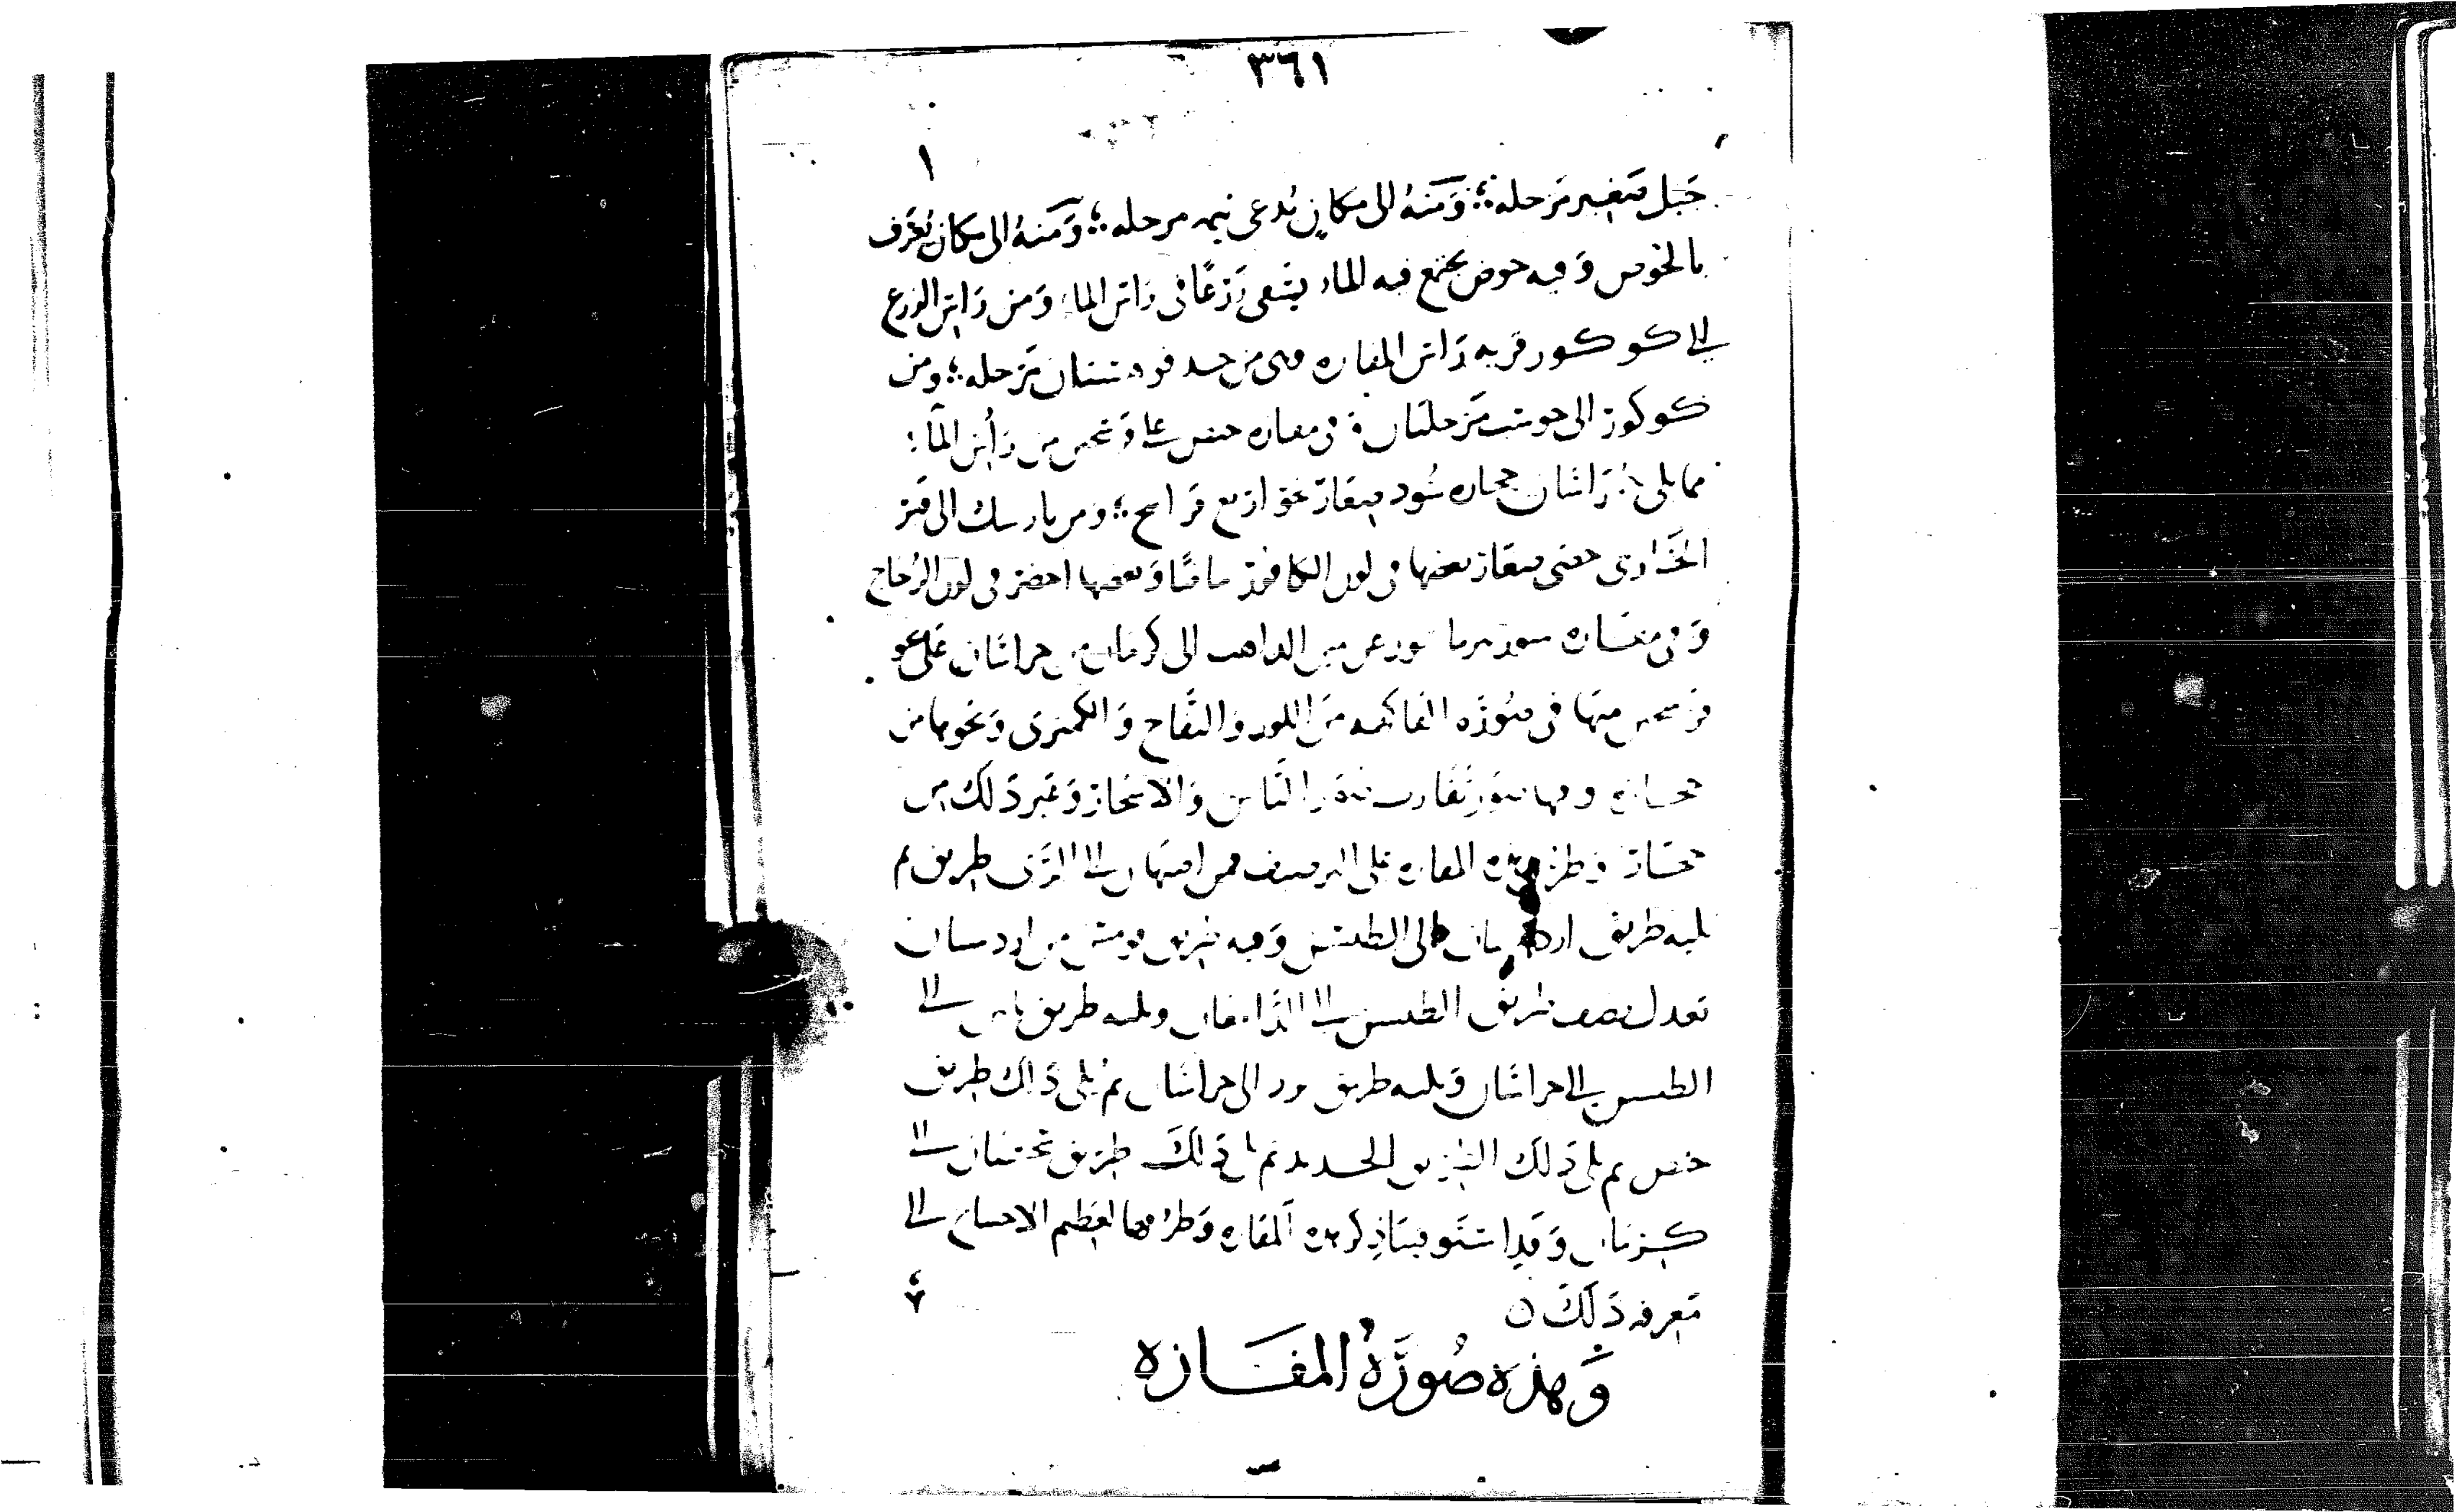 ٣٦١
جبل صغير مرحله ؛ ومنه الى مكان يدعى نيمه مرحله ؛ ومنه الى مكان يعرف
بالخوص وفيه حوض يجتمع فيه الماء يسقى زرعا في راس الماء ومن راس الزرع
الى كوكور قريه راس المفازه وهى من حد قوهستان مرحله ؛ ومن
كوكور الى خوست مرحلتان وفي مفازه خبيص على من راس الماء
مما يلى خراسان حجاره سود صغار نحو اربع فراسخ ؛ ومن بارسك الى قبر
الخارى حصى صغار بعضها في لون الكافور بياضا وبعضها اخضر في لون الزجاج
وفي مفازه الذاهب الى كرمان من خراسان على نحو
فرسخين منها في صوره الفاكهه من اللوز والتفاح والكمثرى ونحوها من
حجاره وفيها صور تقارب صور الناس والاشجار وغير ذلك من
حجاره وطرق هذه المفازه على الترصيف فمن اصبهان الى الرى طريق ثم
يليه طريق الى الطبسين وفيه طريق من اردستان
تعدل نصف طريق الطبسين الى الدامغان ويليه طريق نايين الى
الطبسين الى خراسان ويليه طريق يزد الى خراسان ثم يلى ذلك طريق
خبيص ثم يلى ذلك الطريق الجديد ثم يلى ذلك طريق سجستان الى
كرمان وقد استوفينا ذكر هذه المفازه وطرقها لعظم الاحتياج الى
معرفه ذلك
وهذه صورة المفازه